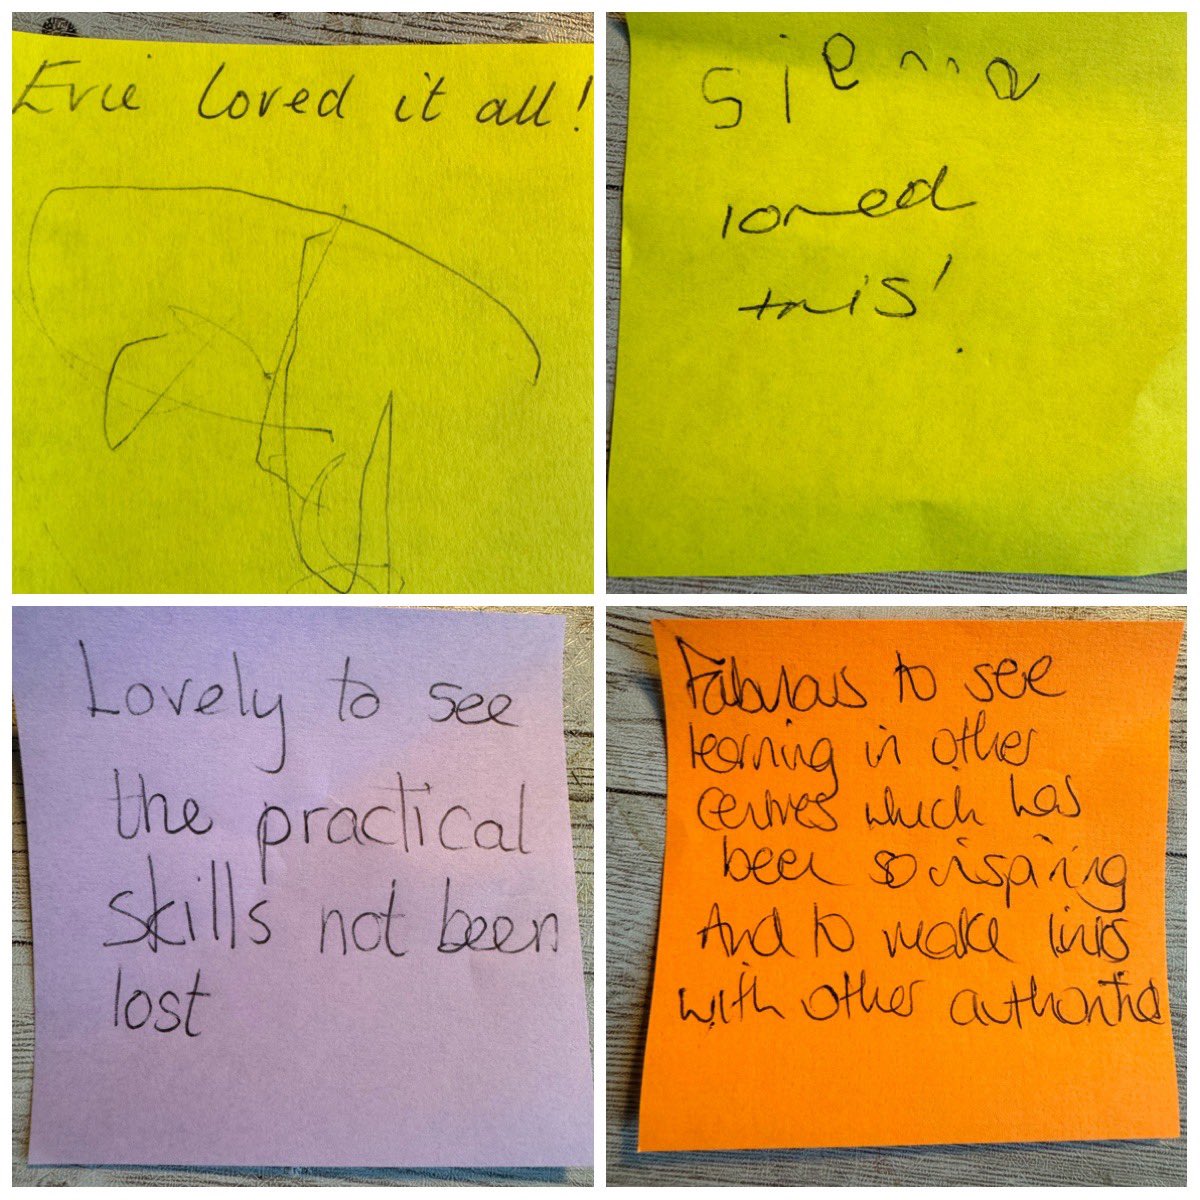 Evie loved it all!
Sienna
loved
this!
Lovely to see
the practical
skills not been
lost
Fabulous to see
learning in other
centres which has
been so inspiring
And to make links
with other authorities